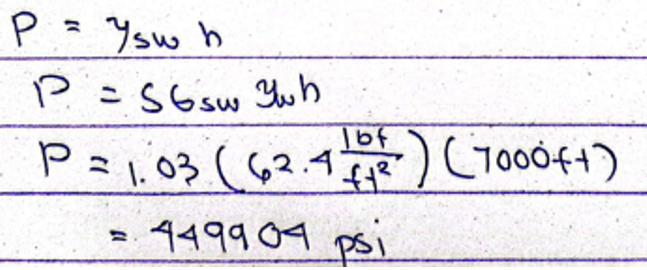 P = γsw h
P = SGsw γw h
P = 1.03 (62.4 lbf/ft²) (7000ft)
= 449904 psi